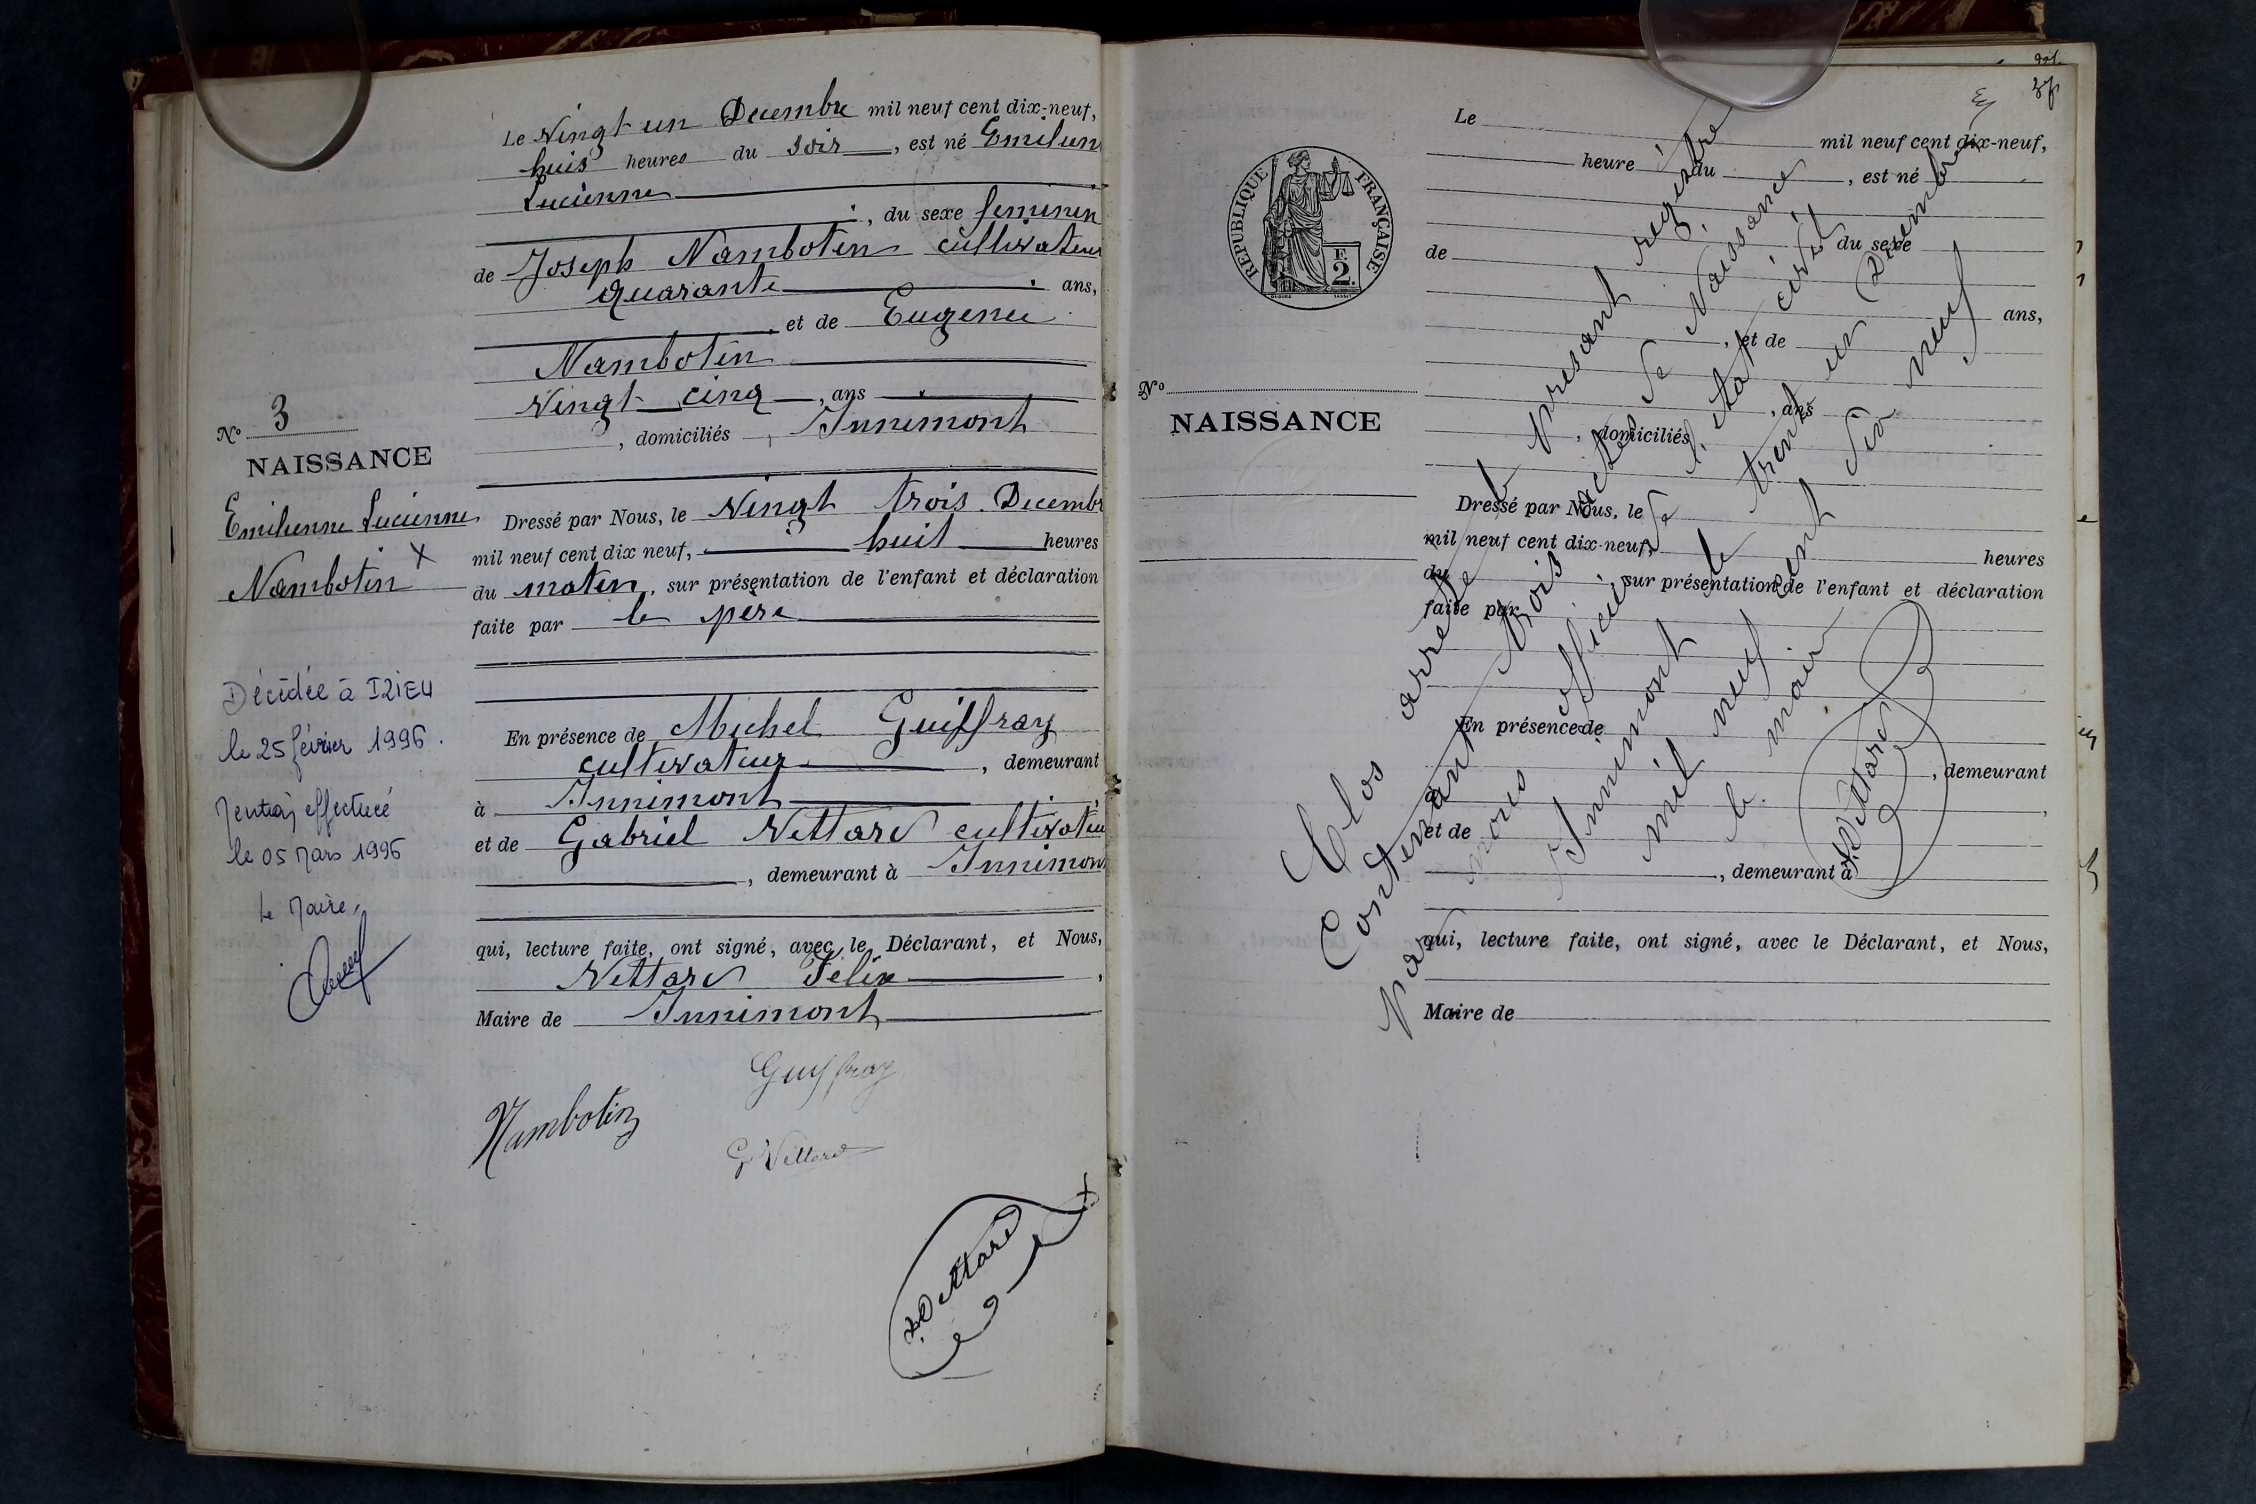 Le Vingt un Decembre mil neuf cent dix-neuf,
huit heures du soir, est né Emilienn
Lucienne
, du sexe feminin
de Joseph Nambotin cultivateur
quarante ans,
et de Eugenie
Nambotin
Vingt cinq, ans
, domiciliés, Innimont
Nº 3
NAISSANCE
Emilienne Lucienne
Nambotin X
Décédée à IZIEU
le 25 février 1996.
Mention effectuée
le 05 Mars 1996
Le Maire,
Dressé par Nous, le Vingt trois Decembr
mil neuf cent dix neuf, huit heures
du matin, sur présentation de l'enfant et déclaration
faite par le père
En présence de Michel Guiffray
cultivateur, demeurant
à Innimont,
et de Gabriel Vettard cultivateu
, demeurant à Innimon
qui, lecture faite, ont signé, avec le Déclarant, et Nous,
Vettard Felix,
Maire de Innimont
Guiffray
Nambotin
G Vettard
Vettard
RÉPUBLIQUE FRANÇAISE
F.
2.
Nº
NAISSANCE
Le mil neuf cent dix-neuf,
heure du, est né
du sexe
de
ans,
, et de
, ans
, domiciliés
Dressé par Nous, le
mil neuf cent dix-neuf,
heures
du, sur présentation de l'enfant et déclaration
faite par
En présence de
, demeurant
à,
et de
, demeurant à
qui, lecture faite, ont signé, avec le Déclarant, et Nous,
Maire de
Clos arrete le presant registre
Contenant trois actes de Naissance
par nous officier de l'état civil
Innimont le trent un Decembre
mil neuf cent dix neuf
le maire
Vettard